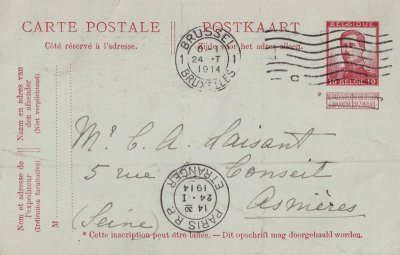 CARTE POSTALE
POSTKAART
Côté réservé à l'adresse.
Zijde voor het adres alleen.
BELGIQUE
10 BELGIË 10
BRUSSEL
1 24 · I 1
1914
BRUXELLES
C
Naam en adres van den afzender
(Niet verplichtend)
Nom et adresse de l'expéditeur
(Indication facultative)
M
Mr. C. A. Laisant
5 rue Conseil
Asnières
(Seine)
PARIS R.P.
ETRANGER
14 30
24 · 1
1914
* Cette inscription peut être biffée. — Dit opschrift mag doorgehaald worden.